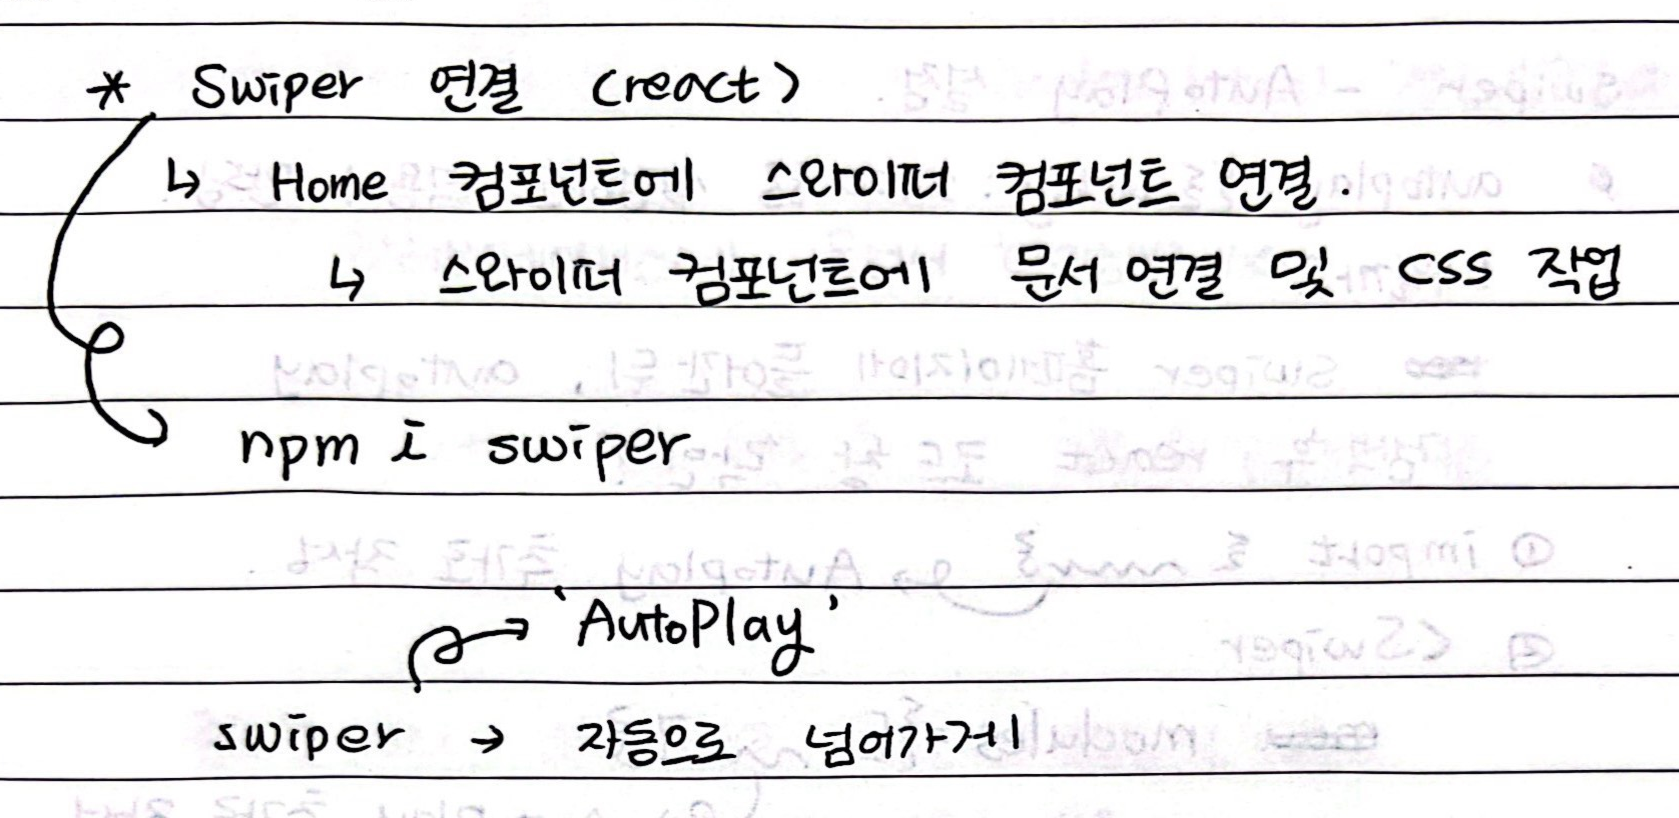 * Swiper 연결 (react)
↳ Home 컴포넌트에 스와이퍼 컴포넌트 연결.
↳ 스와이퍼 컴포넌트에 문서 연결 및 CSS 작업
npm i swiper
'AutoPlay'
swiper → 자동으로 넘어가게